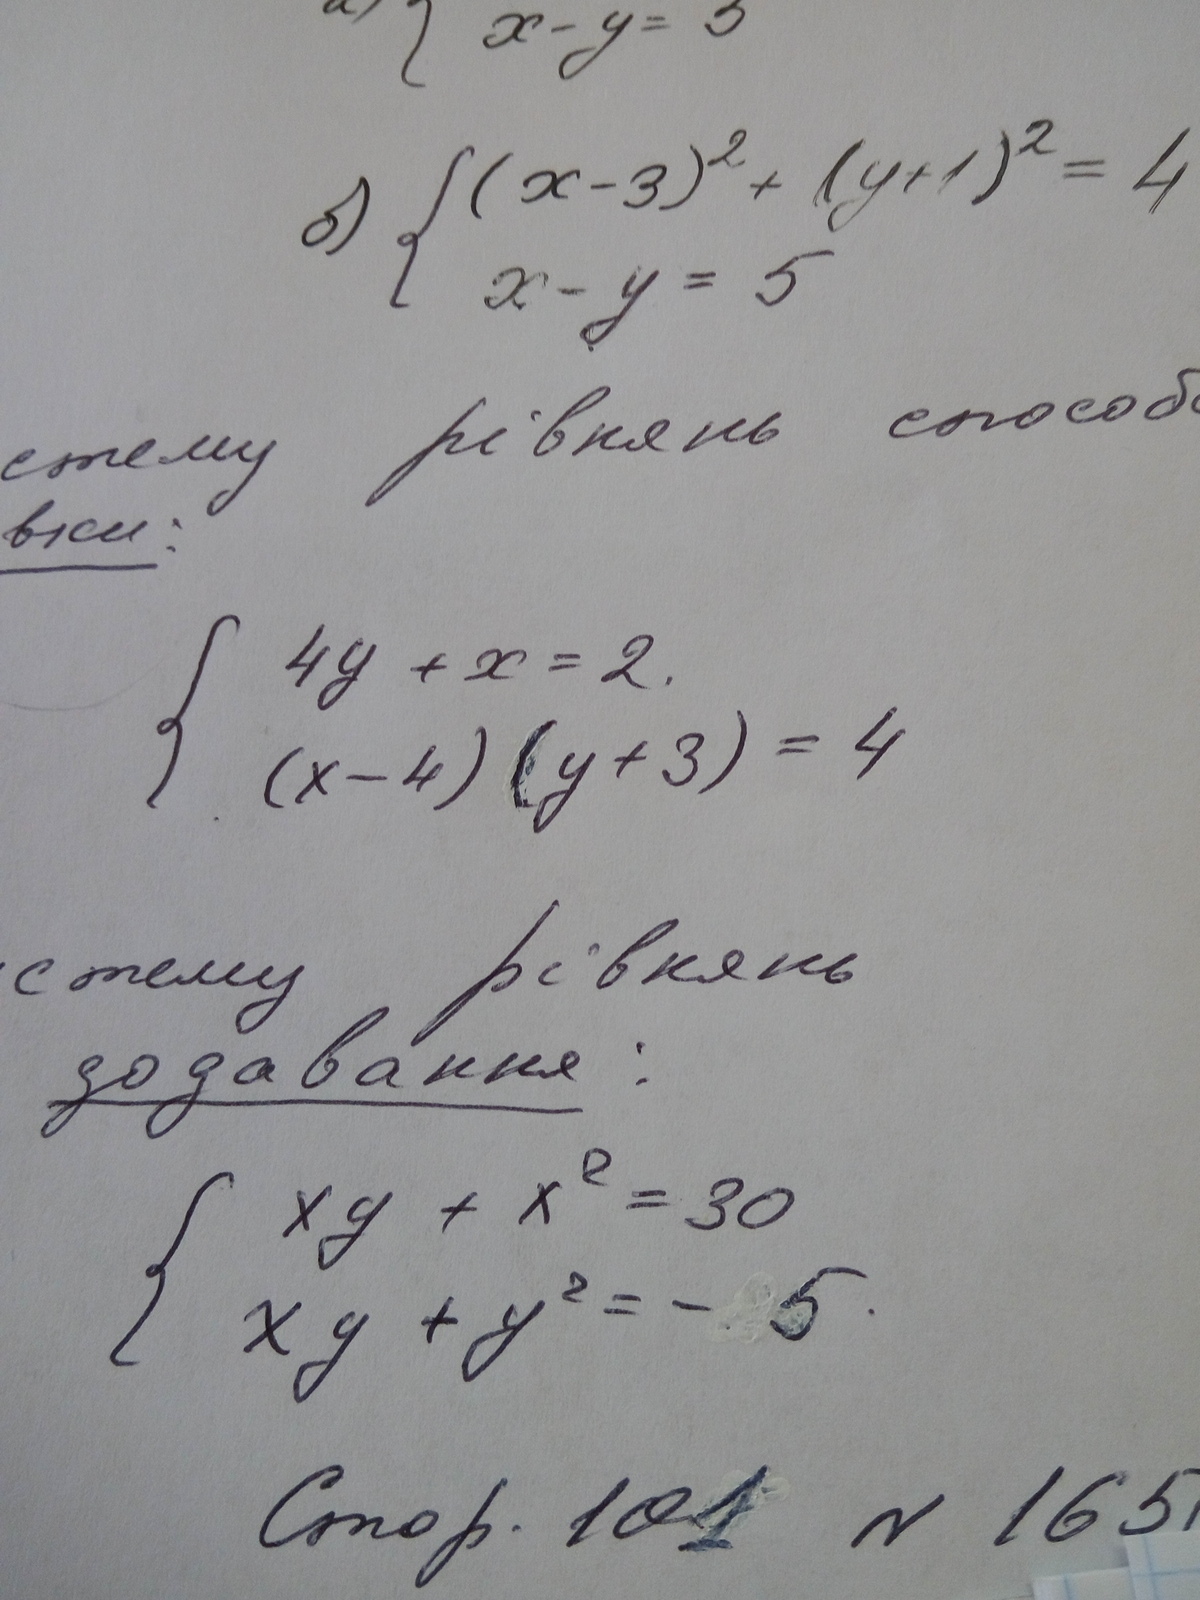 x - y = 3
б) { (x - 3)² + (y + 1)² = 4
x - y = 5
стему рівнянь способо
вки:
{ 4y + x = 2.
(x - 4) (y + 3) = 4
стему рівнянь
додавання:
{ xy + x² = 30
xy + y² = - 5.
Стор. 101 N 165